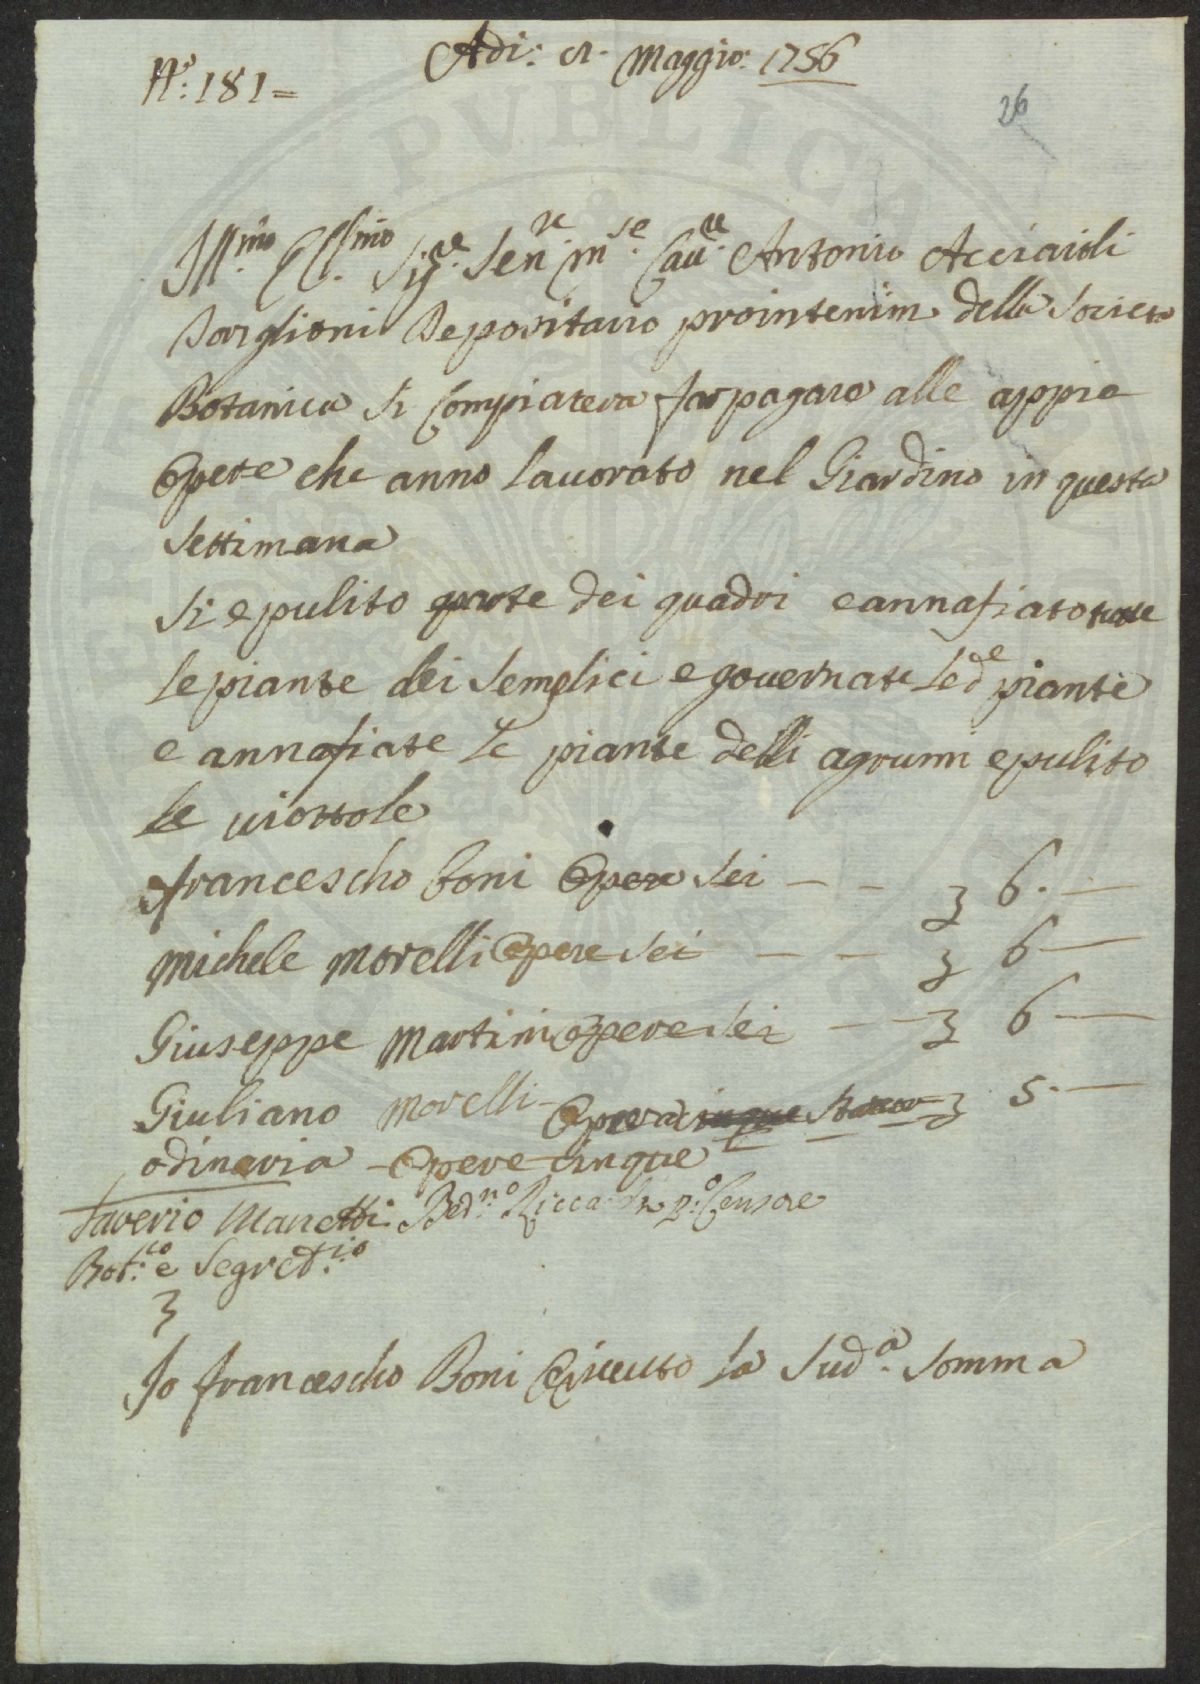 Adi: Maggio: 1756
N.º: 181=
26
Ill.mo Cl.mo Sig.e Sen.re M.se Cau.re Antonio Acciaioli
Torglioni Depositario prointerim della Societa
Botanica Si Compiacera far pagare alle appie
Opere che anno lauorato nel Giardino in questa
Settimana
Si e pulito parte dei quadri e annafiato tutte
le piante dei Semplici e gouernate le d.e piante
e annafiate le piante delli agrumi e pulito
le uiottole
francescho boni Opere Sei — — 3 6. —
Michele Morelli Opere Sei — — 3 6 —
Giuseppe Martini Opere Sei — — 3 6 —
Giuliano Morelli - Opera cinque 3 5. —
odinaria - Opere cinque
Saverio Manetti Bed.no Ricca p.º Censore
Bot.co e Segret.io
3
Io francescho Boni Riceuto la Sud.a Somma
PVBLICA